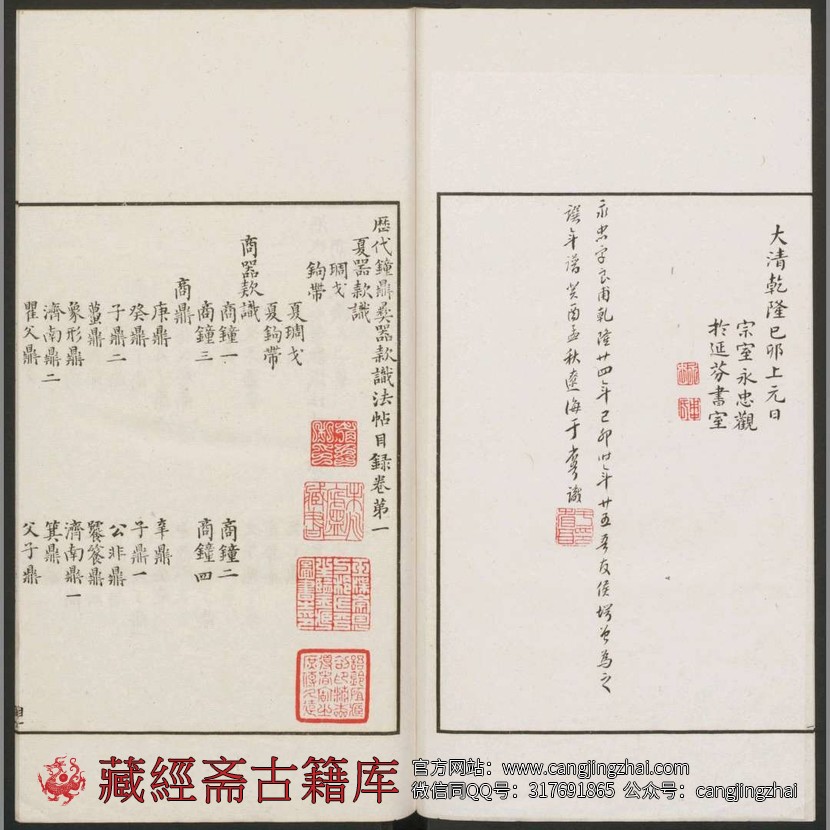 大清乾隆己卯上元日
宗室永忠觀
於延芬書室
永忠字良甫乾隆廿四年己卯時年廿五吾友侯堮曾為之
譔年譜癸酉孟秋遼海于省吾識
歷代鐘鼎彝器款識法帖目錄卷第一
夏器款識
琱戈
鉤帶
夏琱戈
夏鉤帶
商器款識
商鐘一 商鐘二
商鐘三 商鐘四
商鼎
庚鼎 辛鼎
癸鼎 子鼎一
子鼎二 公非鼎
蠆鼎 饕餮鼎
象形鼎 濟南鼎一
濟南鼎二 箕鼎
瞿父鼎 父子鼎
藏經斋古籍库
官方网站：www.cangjingzhai.com
微信同QQ号：317691865 公众号：cangjingzhai